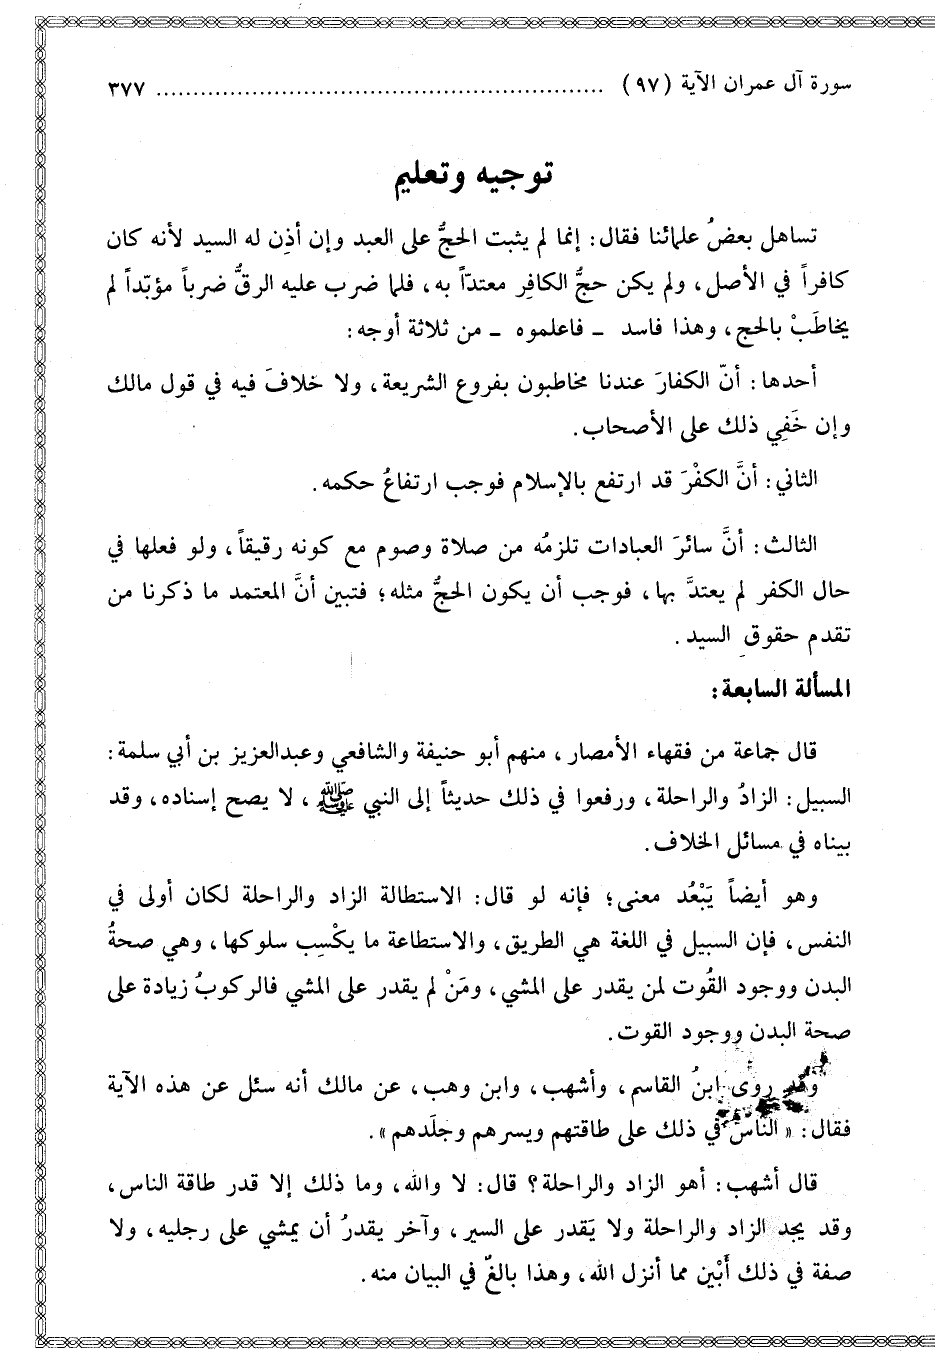 سورة آل عمران الآية (٩٧) ............................................................ ٣٧٧
توجيه وتعليم
تساهل بعضُ علمائنا فقال: إنما لم يثبت الحجُّ على العبد وإن أذِن له السيد لأنه كان
كافراً في الأصل، ولم يكن حجُّ الكافِر معتدّاً به، فلما ضرب عليه الرقُّ ضرباً مؤبّداً لم
يخاطَبْ بالحج، وهذا فاسد ـ فاعلموه ـ من ثلاثة أوجه:
أحدها: أنّ الكفارَ عندنا مخاطبون بفروع الشريعة، ولا خلافَ فيه في قول مالك
وإن خَفِي ذلك على الأصحاب.
الثاني: أنَّ الكفْرَ قد ارتفع بالإسلام فوجب ارتفاعُ حكمه.
الثالث: أنَّ سائرَ العبادات تلزمُه من صلاة وصوم مع كونه رقيقاً، ولو فعلها في
حال الكفر لم يعتدَّ بها، فوجب أن يكون الحجُّ مثله؛ فتبين أنَّ المعتمد ما ذكرنا من
تقدم حقوقِ السيد.
المسألة السابعة:
قال جماعة من فقهاء الأمصار، منهم أبو حنيفة والشافعي وعبدالعزيز بن أبي سلمة:
السبيل: الزادُ والراحلة، ورفعوا في ذلك حديثاً إلى النبي ﷺ، لا يصح إسناده، وقد
بيناه في مسائل الخلاف.
وهو أيضاً يَبْعُد معنى؛ فإنه لو قال: الاستطالة الزاد والراحلة لكان أولى في
النفس، فإن السبيل في اللغة هي الطريق، والاستطاعة ما يكْسِب سلوكها، وهي صحةُ
البدن ووجود القُوت لمن يقدر على المشي، ومَنْ لم يقدر على المشي فالركوبُ زيادة على
صحة البدن ووجود القوت.
وقد روى ابنُ القاسم، وأشهب، وابن وهب، عن مالك أنه سئل عن هذه الآية
فقال: «الناس في ذلك على طاقتهم ويسرهم وجلَدهم».
قال أشهب: أهو الزاد والراحلة؟ قال: لا والله، وما ذلك إلا قدر طاقة الناس،
وقد يجد الزاد والراحلة ولا يَقدر على السير، وآخر يقدرُ أن يمشي على رجليه، ولا
صفة في ذلك أَبْين مما أنزل الله، وهذا بالغٌ في البيان منه.